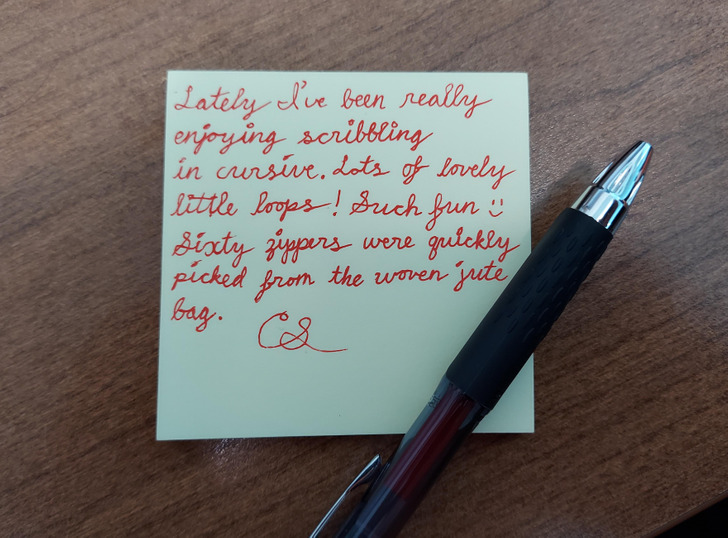 Lately I've been really
enjoying scribbling
in cursive. Lots of lovely
little loops! Such fun :)
Sixty zippers were quickly
picked from the woven jute
bag.
CS